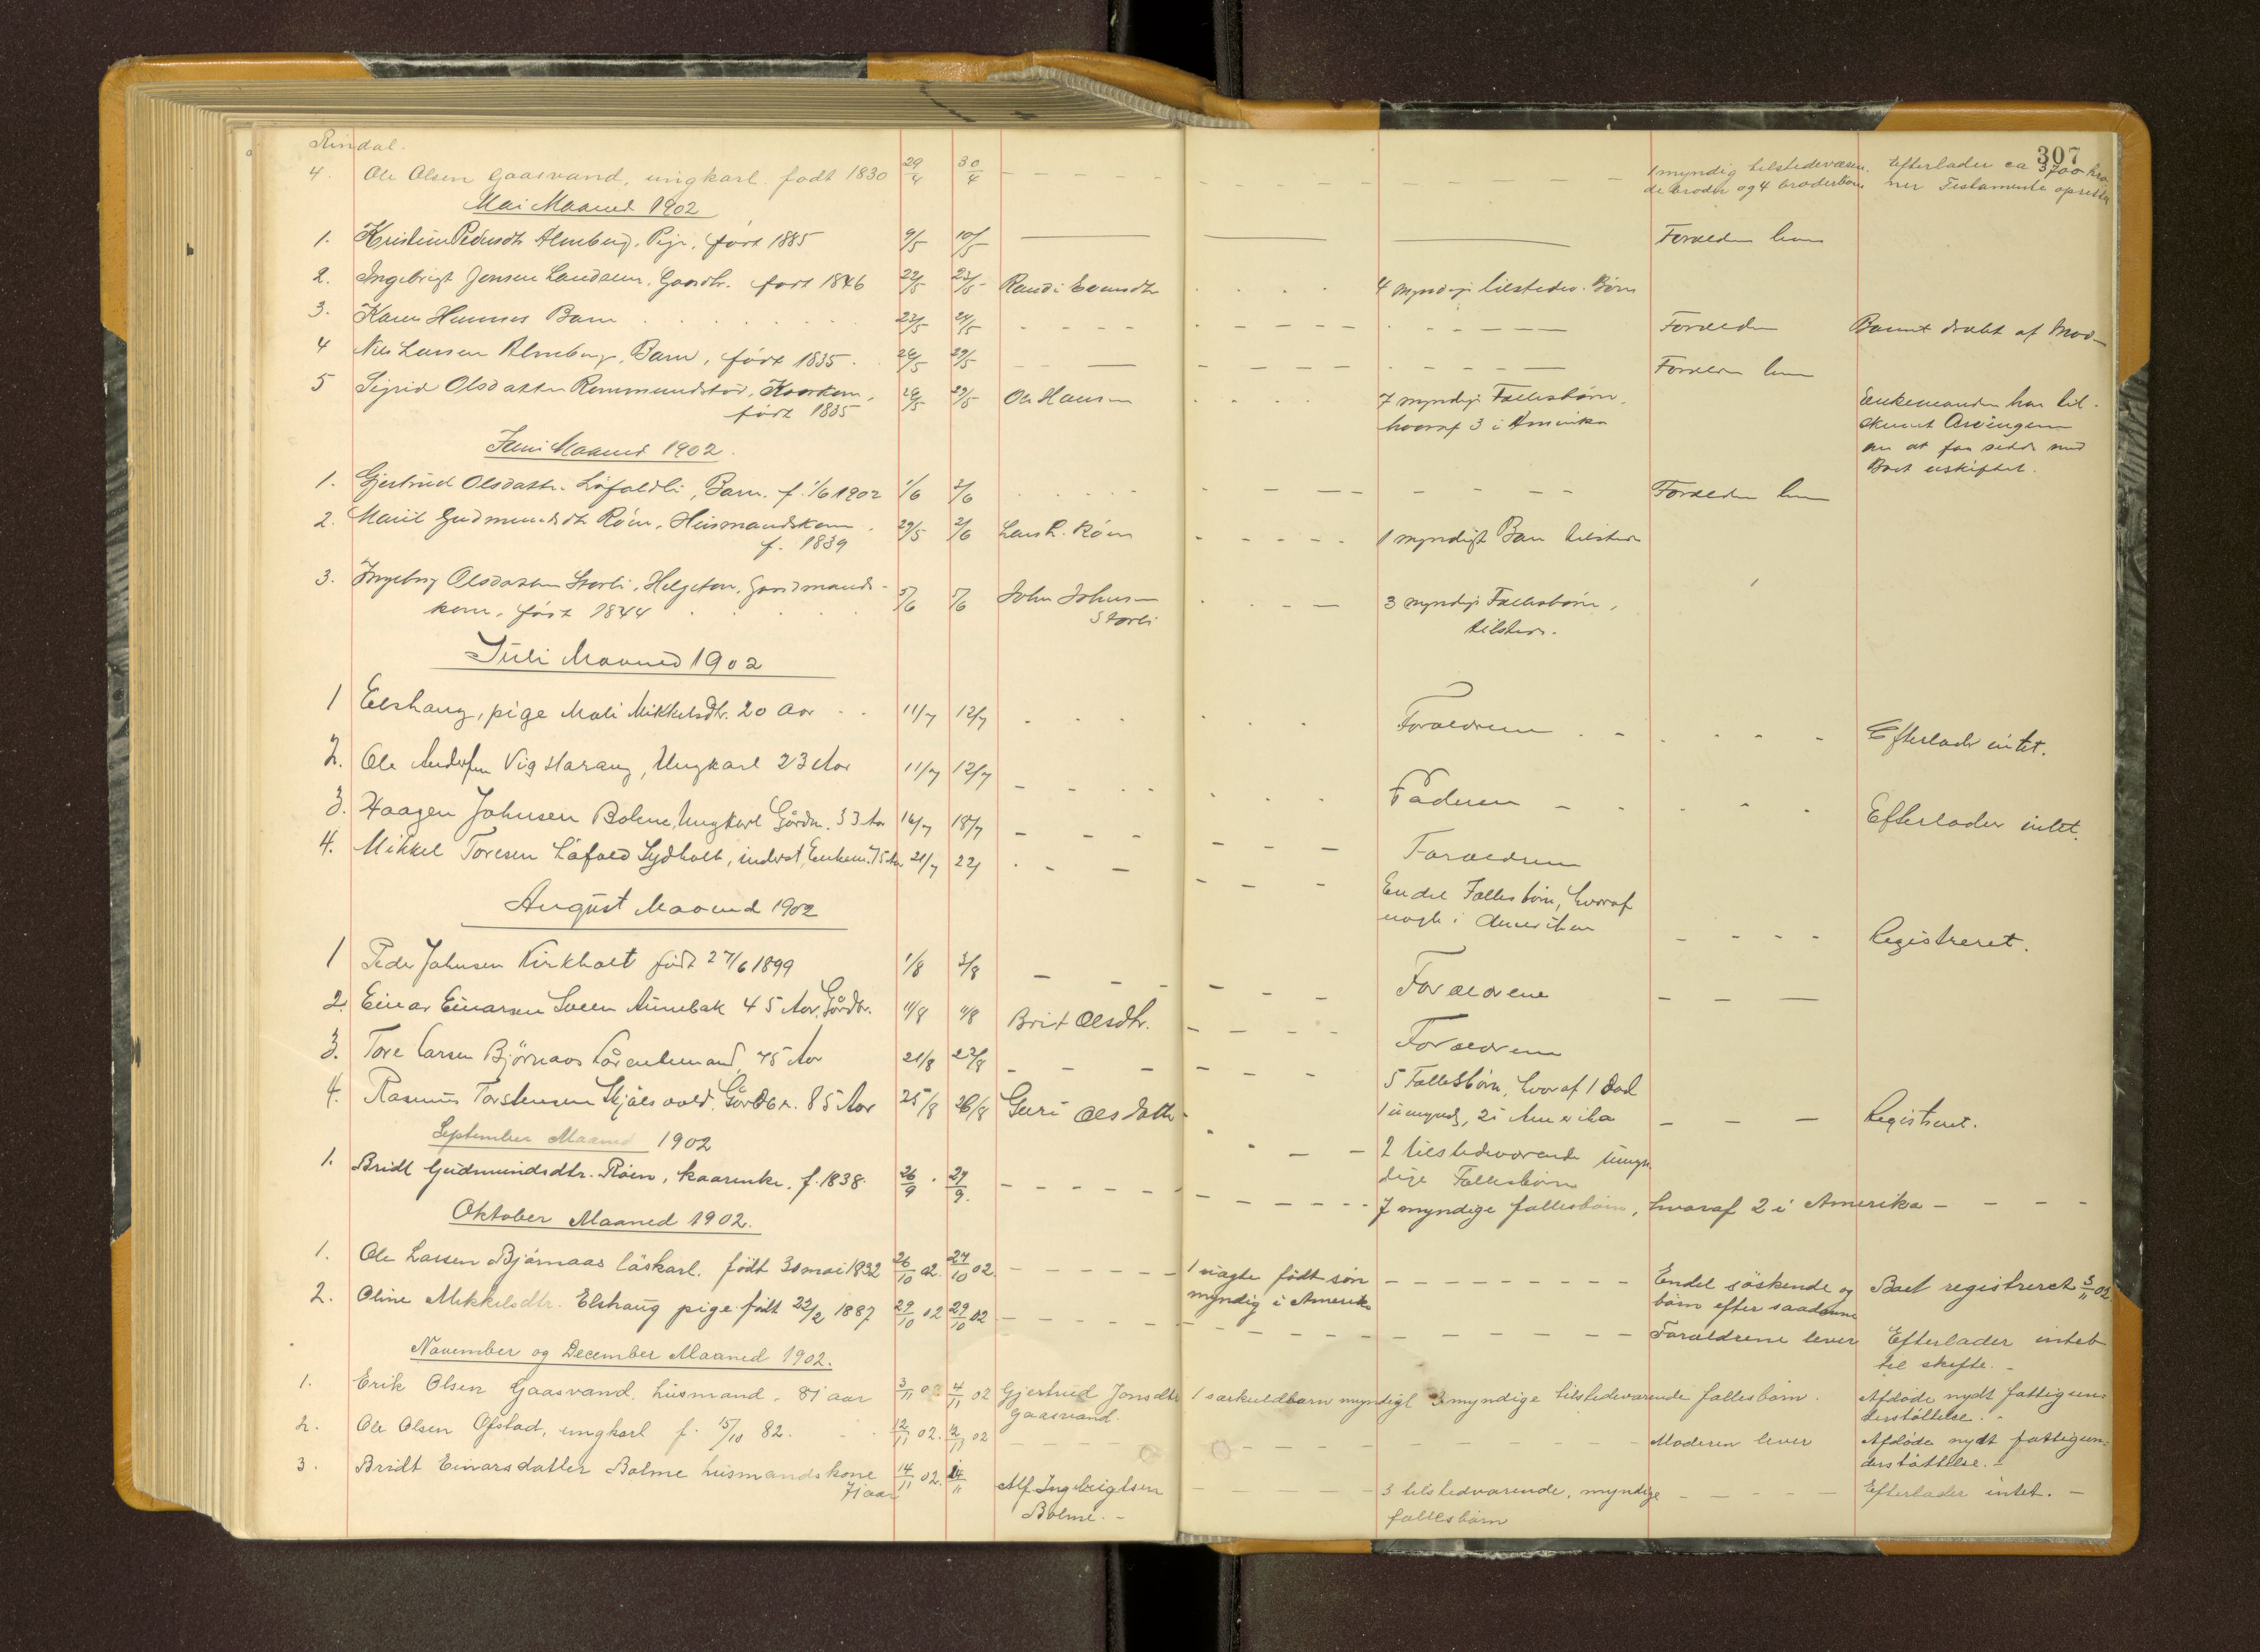 307
Rindal.
4. Ole Olsen Gaasvand, ungkarl. født 1830 29/4 30/4 1 myndig tilstedeværen- Efterlader ca 3700 kro-
de broder og 4 broderbørn ner Testamente oprettet
Mai Maaned 1902
1. Kristine Pedersdtr Almberg, Pige, født 1885 9/5 10/5 Forældre leve
2. Ingebrigt Jonsen Landsem, Gaardbr. født 1846 22/5 23/5 Randi Evensdtr 4 myndige tilstedev. Børn
3. Karen Barn 23/5 24/5 Forældre Barnet dræbt af Mod
4 Nils Larsen Almberg, Barn, født 1835. 26/5 29/5 Forældre leve
5 Sigrid Olsdatter Rommundstad, Kaarkone, 26/5 29/5 Ole Hansen 7 myndige Fællesbørn, Enkemanden har til-
født 1835 hvoraf 3 i Amerika skrevet Arvingerne
om at faa sidde med
Boet uskiftet.
Juni Maaned 1902.
1. Gjertrud Olsdatter Løfaldli, Barn. f. 1/6 1902 1/6 3/6 Forældre leve
2. Marit Gudmundsdtr Røen, Husmandskone 29/5 2/6 Lars L. Røen 1 myndigt Barn tilstede
f. 1839
3. Ingeborg Olsdatter Storli, Helgeton, Gaardmands- 5/6 5/6 John Johnsen 3 myndige Fællesbørn,
kone, født 1844 Storli tilstede.
Juli Maaned 1902
1 Elshaug, pige Mali Mikkelsdtr. 20 Aar 11/7 12/7 Forældrene Efterlader intet.
2. Ole Andersen Vig Harang, Ungkarl 23 Aar 11/7 12/7 Faderen Efterlader intet.
3. Haagen Johnsen Bolme, Ungkarl Gårdbr. 33 Aar 16/7 18/7 Forældrene
4. Mikkel Toresen Løfald Sydholt, inderst, Enkem. 75 Aar 21/7 22/ En del Fællesbørn, hvoraf
nogle i Amerika Registreret.
August Maaned 1902
1 Peder Johnsen Kirkholt født 27/6 1899 1/8 3/8 Forældrene
2. Einar Einarsen Sveen Aunebak 45 Aar, Gårdbr. 11/8 11/8 Brit Olsdtr. Forældrene
3. Tore Larsen Bjørnaas Kårenkemand, 75 Aar 21/8 22/8 5 Fællesbørn, hvoraf 1 Død
1 umynd, 2 i Amerika Registreret.
4. Rasmus Torstensen Skjølsvold, Gårdbr. 85 Aar 25/8 26/8 Guri Olsdatter 2 tilstedeværende umyn-
dige Fællesbørn
September Maaned 1902
1. Bridt Gudmundsdtr. Røen, kaarenke. f. 1838. 26/9 27/9. 7 myndige fællesbørn, hvoraf 2 i Amerika
Oktober Maaned 1902.
1. Ole Larsen Bjørnaas løskarl. født 30 mai 1832 26/10 02. 27/10 02. 1 uægte født søn Endel søskende og Boet registreret 3/11 02
myndig i Amerika børn efter saadanne
2. Oline Mikkelsdtr. Elshaug pige født 22/2 1887 29/10 02 29/10 02 Forældrene lever Efterlader intet
til skifte.
November og December Maaned 1902.
1. Erik Olsen Gaasvand, husmand. 81 aar 3/11 02 4/11 02 Gjertrud Jonsdtr 1 særkuldbarn myndigt 3 myndige tilstedeværende fællesbørn. Afdøde nydt fattigun-
Gaasvand. derstøttelse.
2. Ole Olsen Ofstad, ungkarl f. 15/10 82. 12/11 02. 12/11 02 Moderen lever Afdøde nydt fattigun-
derstøttelse.
3. Bridt Einarsdatter Bolme husmandskone 14/11 02. 14/11 Alf Ingebrigtsen 3 tilstedværende, myndige Efterlader intet.
71 aar Bolme. fællesbørn